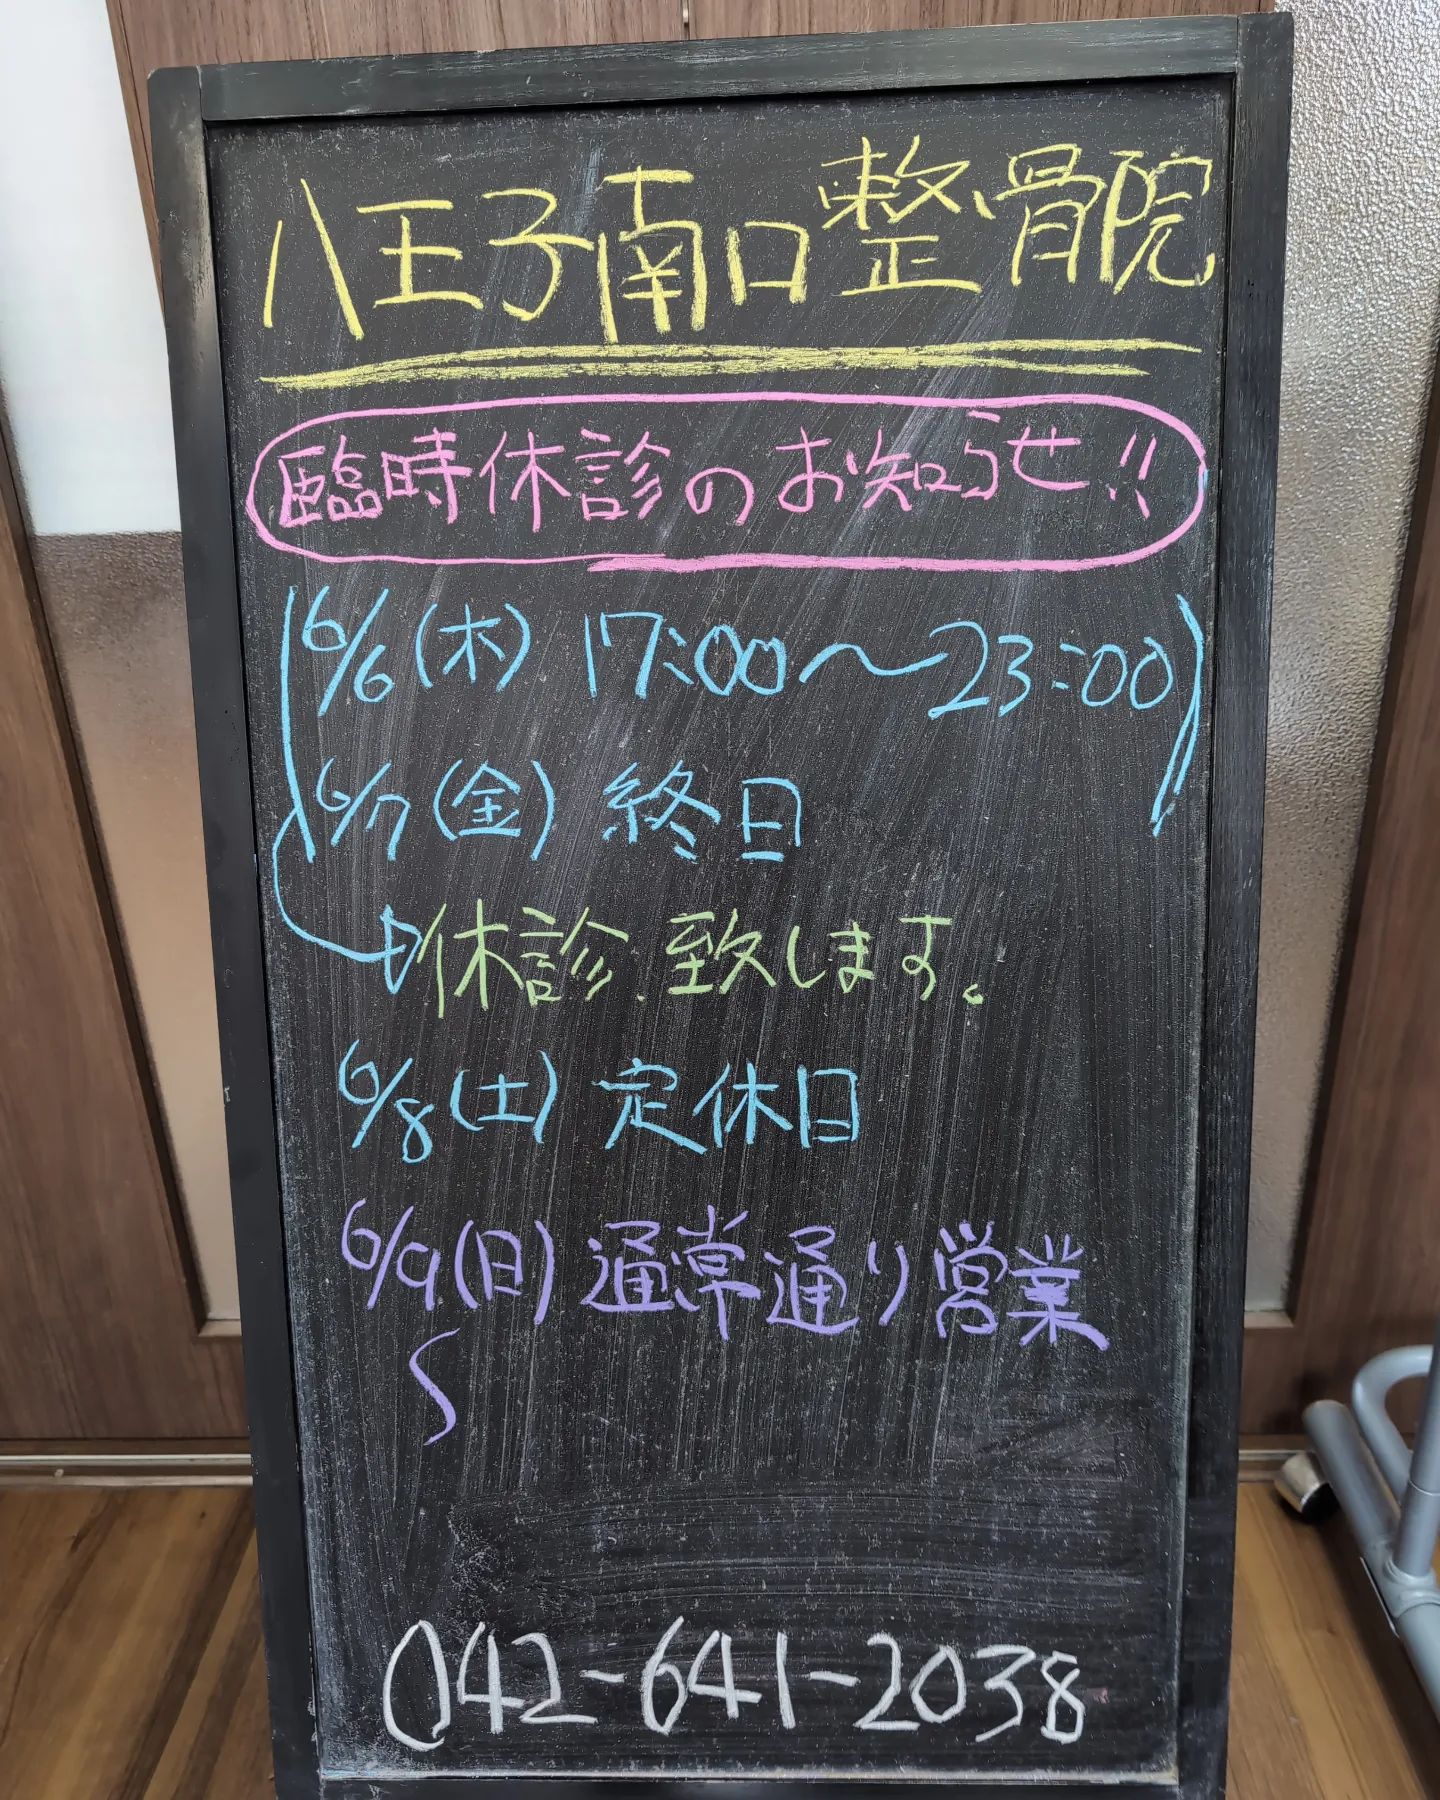 八王子南口整骨院
臨時休診のお知らせ!!
6/6(木) 17:00〜23:00
6/7(金) 終日
休診致します。
6/8(土) 定休日
6/9(日) 通常通り営業
〜
042-641-2038